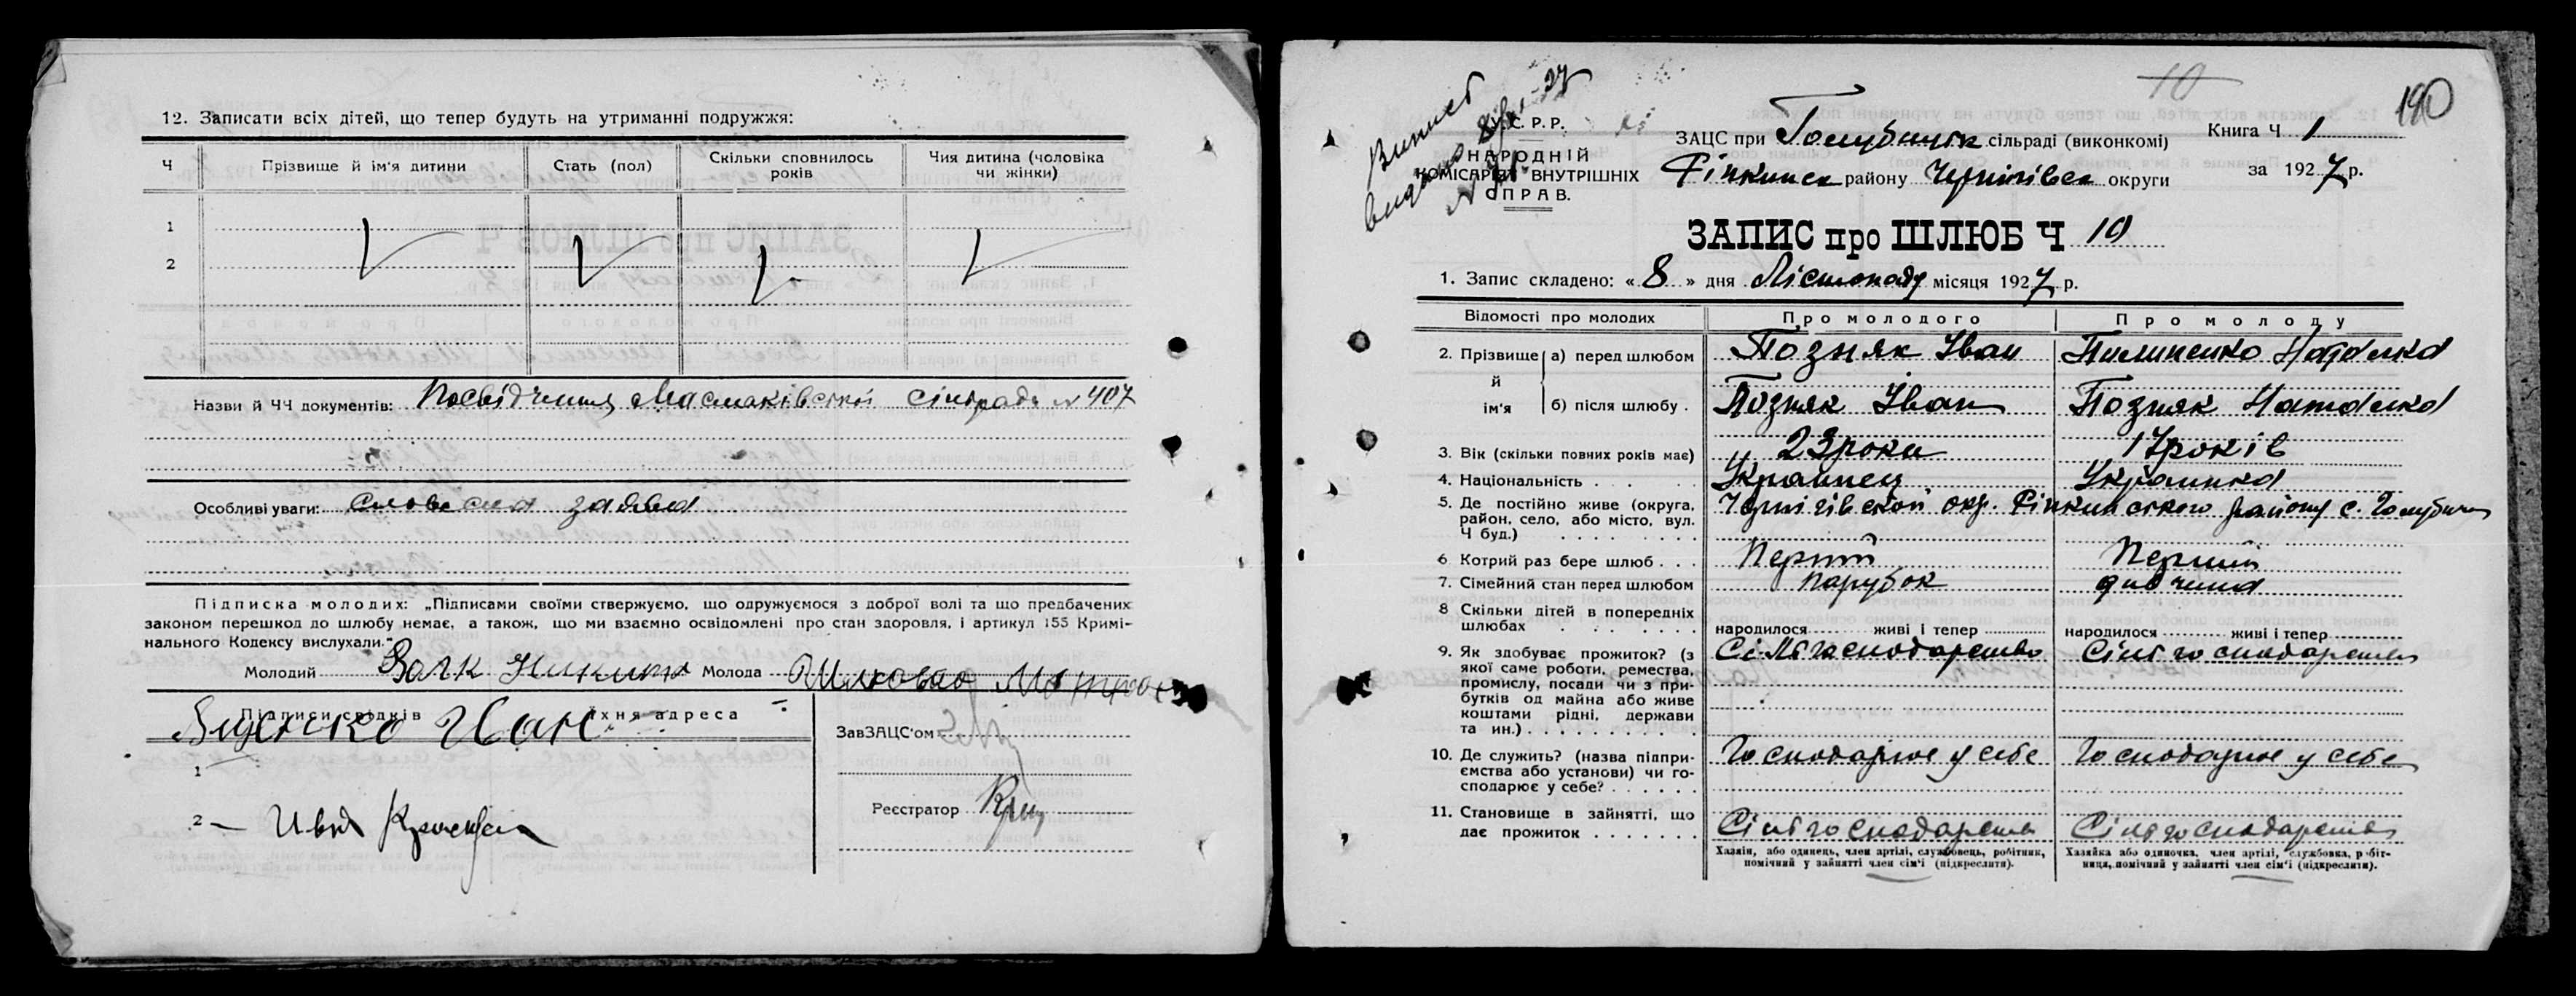 12. Записати всіх дітей, що тепер будуть на утриманні подружжя:
Ч Прізвище й ім'я дитини Стать (пол) Скільки сповнилось років Чия дитина (чоловіка чи жінки)
1
2
Назви й ЧЧ документів: Посвідчення сільради № 407
Особливі уваги: словесна заява
Підписка молодих: „Підписами своїми стверджуємо, що одружуємося з доброї волі та що предбачених
законом перешкод до шлюбу немає, а також, що ми взаємно освідомлені про стан здоровля, і артикул 155 Кримі-
нального Кодексу вислухали."
Молодий Вовк Никита Молода
Підписи свідків Їхня адреса
Іван
ЗавЗАЦС'ом
1
Реєстратор
2 —
10
190
Випис
видано
У.С.Р.Р.
НАРОДНІЙ
КОМІСАРІЯТ ВНУТРІШНІХ
СПРАВ.
ЗАЦС при Голубицьк сільраді (виконкомі)
Ріпкинск району Чернігівск округи
Книга Ч 1
за 1927 р.
ЗАПИС про ШЛЮБ Ч 10
1. Запис складено: « 8 » дня Лістопаду місяця 1927 р.
Відомості про молодих Про молодого Про молоду
2. Прізвище й ім'я а) перед шлюбом Позняк Іван Пилипенко Наталка
б) після шлюбу Позняк Іван Позняк Наталка
3. Вік (скільки повних років має) 23 роки 17 років
4. Національність Українец Українка
5. Де постійно живе (округа, район, село, або місто, вул. Ч буд.) Чернігівской окр. Ріпкинского району с. Голубичи
6 Котрий раз бере шлюб Перший Перший
7. Сімейний стан перед шлюбом парубок дивчина
8 Скільки дітей в попередніх шлюбах народилося живі і тепер народилося живі і тепер
9. Як здобуває прожиток? (з якої саме роботи, ремества, промислу, посади чи з прибутків од майна або живе коштами рідні, держави та ин.) Сільгосподарство Сільгосподарство
10. Де служить? (назва підприємства або установи) чи господарює у себе? Господарює у себе Господарює у себе
11. Становище в зайнятті, що дає прожиток Сільгосподарство Сільгосподарство
Хазяін, або одинець, член артілі, службовець, робітник,
помічний у зайнятті член сім'ї (підкреслити).
Хазяйка або одиночка, член артілі, службовка, робіт-
ниця, помічний у зайнятті член сім'ї (підкреслити).